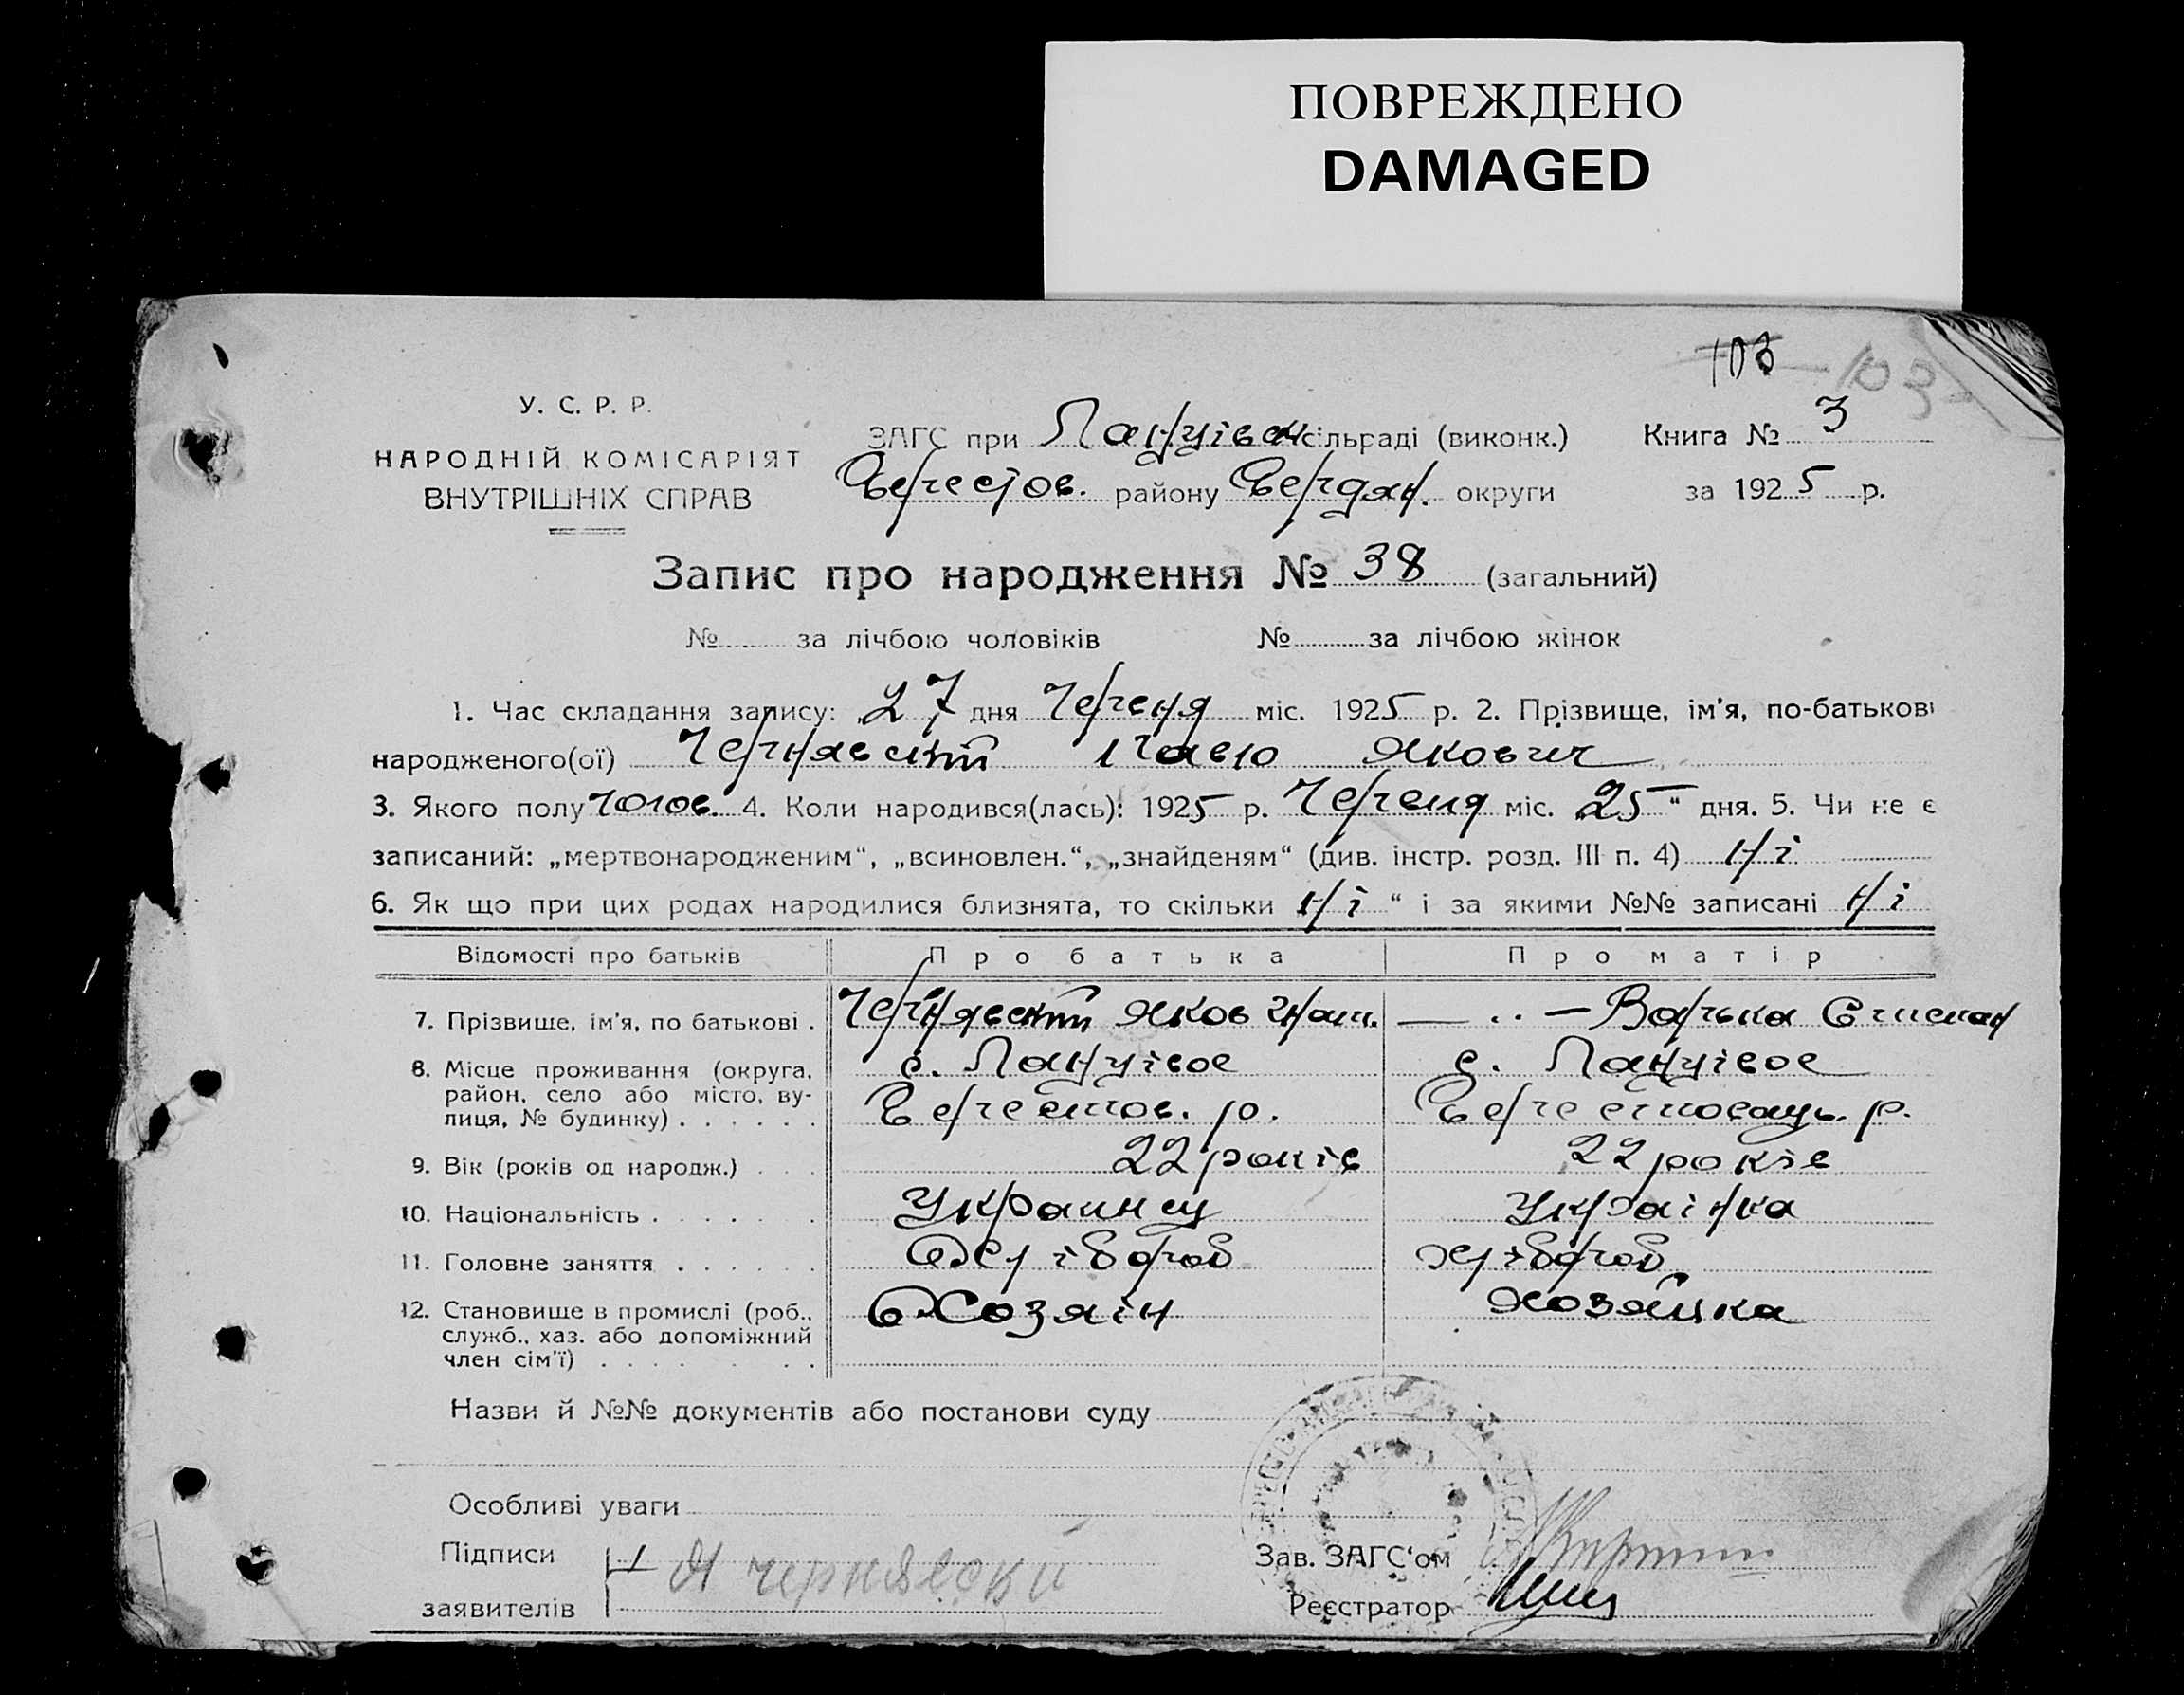 ПОВРЕЖДЕНО
DAMAGED
103 103
У. С. Р. Р.
НАРОДНІЙ КОМІСАРІЯТ
ВНУТРІШНІХ СПРАВ
ЗАГС при Ланцівск сільраді (виконк.) Книга № 3
Берестов. району Бердян. округи за 1925 р.
Запис про народження № 38 (загальний)
№ за лічбою чоловіків № за лічбою жінок
1. Час складання запису: 27 дня Червня міс. 1925 р. 2. Прізвище, ім'я, по-батькові
народженого(ої) Чернявский Павло Якович
3. Якого полу чолов. 4. Коли народився(лась): 1925 р. Червня міс. 25 " дня. 5. Чи не є
записаний: „мертвонародженим“, „всиновлен.“, „знайденям“ (див. інстр. розд. III п. 4) Ні
6. Як що при цих родах народилися близнята, то скільки Ні “ і за якими №№ записані Ні
Відомості про батьків Про батька Про матір
7. Прізвище, ім'я, по батькові . Чернявский Яков Игнат. — ·· — Варька
8. Місце проживання (округа, район, село або місто, вулиця, № будинку) . . . . . . с. Ланцівое с. Ланцівое
Берестов. р. Берестовець. р.
9. Вік (років од народж.) . . . 22 років 22 років
10. Національність . . . . . . Украинец Українка
11. Головне заняття . . . . . . Хлібороб Хлібороб
12. Становище в промислі (роб., служб., хаз. або допоміжний член сім'ї) . . . . . . Хозяін Хозяйка
Назви й №№ документів або постанови суду
Особливі уваги
Підписи Я чернявски Зав. ЗАГС‘ом
заявителів Реєстратор